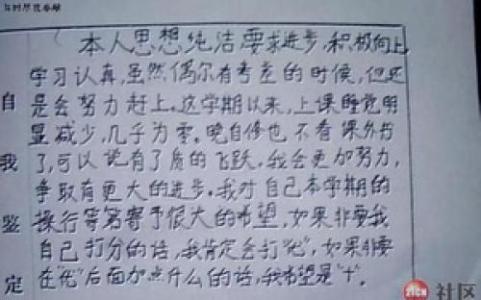 本人思想纯洁要求进步，积极向上
学习认真，虽然偶尔有考差的时候，但还
是会努力赶上。这学期以来，上课睡觉明
显减少，几乎为零。晚自修也不看课外书
了，可以说有了质的飞跃，我会更加努力，
争取有更大的进步。我对自己本学期的
操行等第寄予很大的希望，如果非要我
自己打分的话，我肯定会打“优”，如果非要
在“优”后面加点什么的话，我希望是“十”。
自我鉴定
社区